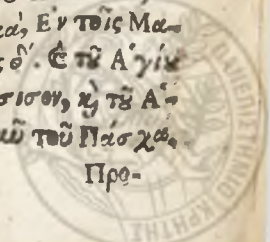 κά, Ἐν τοῖς Μα-
ς θ´. Ἐ τῦ Ἁγίυ
σισον, κ̀, τῦ Ἁ-
τοῦ Πάσχα.
Προ-
ΠΑΝΕΠΙΣΤΗΜΙΟ ΚΡΗΤΗΣ